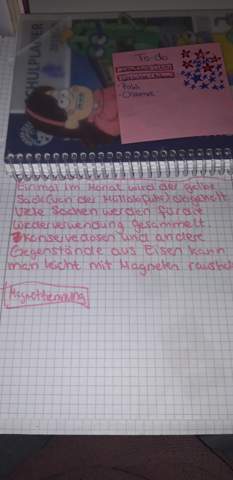 SCHULPLANER
To-do
- PoWi
- Chemie
Einmal im Monat wird der gelbe
Sack (von der Müllabfuhr) abgeholt
Viele Sachen werden für die
wiederverwendung gesammelt
Konservedosen und andere
Gegenstände aus Eisen kann
man leicht mit Magneten raushol
Magnettrennung